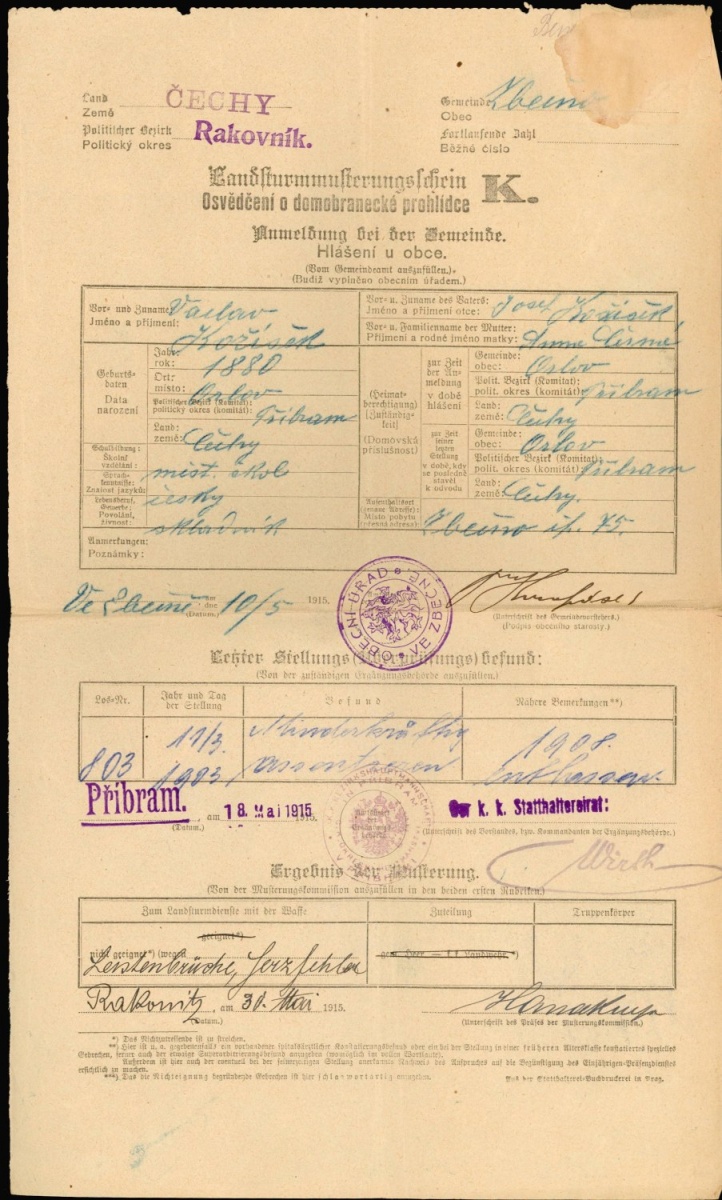 Land
Země ČECHY
Gemeinde
Obec Zbečno
Politischer Bezirk
Politický okres Rakovník.
Fortlaufende Zahl
Běžné číslo
Landsturmmusterungsschein
Osvědčení o domobranecké prohlídce K.
Anmeldung bei der Gemeinde.
Hlášení u obce.
(Vom Gemeindeamt auszufüllen.)
(Budiž vyplněno obecním úřadem.)
Vor- und Zuname
Jméno a příjmení: Václav
Kořísek
Vor- u. Zuname des Vaters:
Jméno a příjmení otce: Josef Kořísek
Vor- u. Familienname der Mutter:
Příjmení a rodné jméno matky: Anna Černá
Geburtsdaten
Data narození
Jahr:
rok: 1880
Ort:
místo: Orlov
Politischer Bezirk (Komitat):
politický okres (komitát): Příbram
Land:
země: Čechy
Schulbildung:
Školní vzdělání: míst. škol
Sprachkenntnisse:
Znalost jazyků: česky
Lebensberuf, Gewerbe:
Povolání, živnost: skladník
(Heimatberechtigung)
(Zuständigkeit)
(Domovská příslušnost)
zur Zeit der Anmeldung
v době hlášení
Gemeinde:
obec: Orlov
Polit. Bezirk (Komitat):
polit. okres (komitát): Příbram
Land:
země: Čechy
zur Zeit seiner letzten Stellung
v době, kdy se posledně stavěl k odvodu
Gemeinde:
obec: Orlov
Politischer Bezirk (Komitat):
polit. okres (komitát) Příbram
Land:
země: Čechy.
Aufenthaltsort
(genaue Adresse):
Místo pobytu
(přesná adresa): Zbečno čp. 75.
Anmerkungen:
Poznámky:
Ve Zbečně am
dne 10/5 1915.
(Datum.)
OBECNÍ ÚŘAD VE ZBEČNĚ
(Unterschrift des Gemeindevorstehers.)
(Podpis obecního starosty.)
Letzter Stellungs(Überprüfungs)befund:
(Von der zuständigen Ergänzungsbehörde auszufüllen.)
Los-Nr.
Jahr und Tag
der Stellung
Befund
Nähere Bemerkungen**)
803
11/3.
1903
Minderkräftig
assentiert
1908.
entlassen.
Příbram. am 18. Mai 1915
(Datum.)
Der k. k. Statthaltereirat:
(Unterschrift des Vorstandes, bzw. Kommandanten der Ergänzungsbehörde.)
Wirth
Ergebnis der Musterung.
(Von der Musterungskommission auszufüllen in den beiden ersten Rubriken.)
Zum Landsturmdienste mit der Waffe
Zuteilung
Truppenkörper
geeignet*)
nicht geeignet*) (wegen
Leistenbrüche, Herzfehler
zum Heer — k. k. Landwehr. *)
Rakonitz, am 30. Mai 1915.
(Datum.)
(Unterschrift des Präses der Musterungskommission.)
*) Das Nichtzutreffende ist zu streichen.
**) Hier ist u. a. gegebenenfalls ein vorhandener spitalsärztlicher Konstatierungsbefund oder ein bei der Stellung in einer früheren Altersklasse konstatiertes spezielles
Gebrechen, ferner auch der etwaige Superarbitrierungsbefund anzugeben (womöglich im vollen Wortlaute).
Außerdem ist hier auch der eventuell bei der seinerzeitigen Stellung anerkannte Nachweis des Anspruches auf die Begünstigung des Einjährigen-Präsenzdienstes
ersichtlich zu machen.
***) Das die Nichteignung begründende Gebrechen ist hier schlagwortartig anzugeben.
Aus der Statthalterei-Buchdruckerei in Prag.